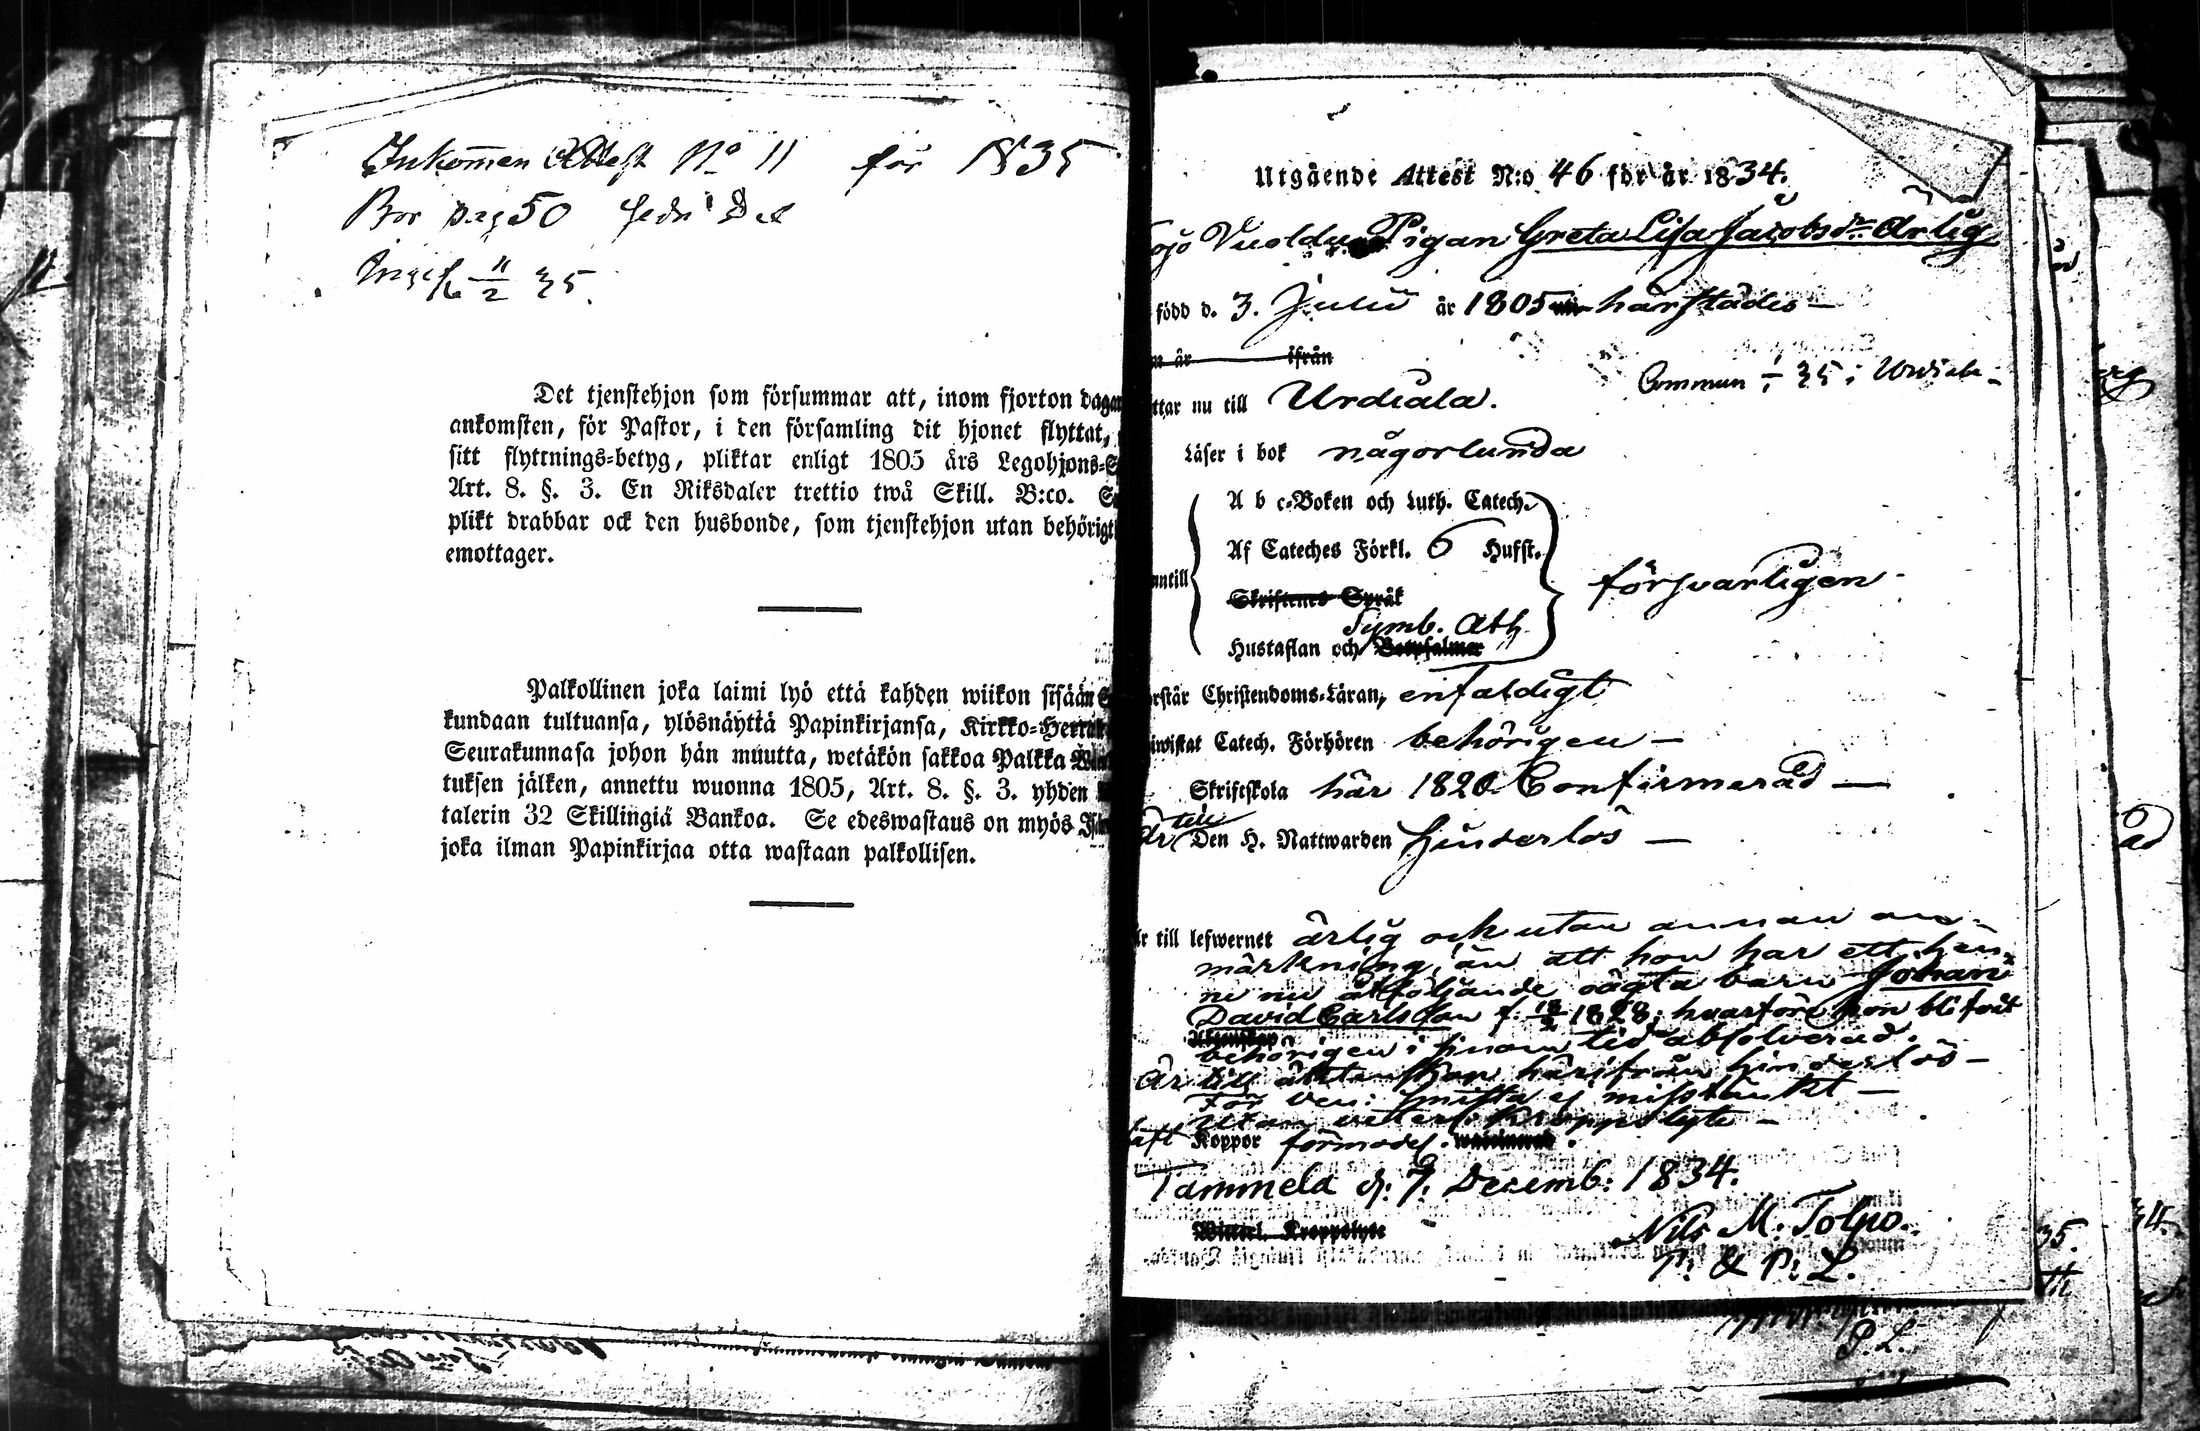 Inkommen Attest No 11 för 1835
Bor pag 50
11/2 35.
Det tjenstehjon som försummar att, inom fjorton dagar
ankomsten, för Pastor, i den församling dit hjonet flyttat,
sitt flyttnings-betyg, pliktar enligt 1805 års Legohjons-S
Art. 8. §. 3. En Riksdaler trettio twå Skill. B:co.
plikt drabbar ock den husbonde, som tjenstehjon utan behörigt
emottager.
Palkollinen joka laimi lyö että kahden wiikon sisään
kundaan tultuansa, ylösnäyttä Papinkirjansa, Kirkko-Herra
Seurakunnasa johon hän muutta, wetäkön sakkoa Palkka
tuksen jälken, annettu wuonna 1805, Art. 8. §. 3. yhden
talerin 32 Skillingiä Bankoa. Se edeswastaus on myös
joka ilman Papinkirjaa otta wastaan palkollisen.
Utgående Attest N:o 46 för år 1834.
Pigan Greta Lisa Jacobsdr Ärlig
född d. 3. Julii år 1805 härstädes —
år ifrån
ttar nu till Urdiala.
Läser i bok någorlunda
A b c-Boken och Luth. Catech.
Af Cateches Förkl. 6 Hufst.
nntill försvarligen
Skriftenes Språk
Symb. Ath.
Hustaflan och Botpsalmer
rstår Christendoms-Läran, enfaldigt
iwistat Catech. Förhören behörigen —
Skriftskola här 1820 Confirmerad —
Är till Den H. Nattwarden hinderlös —
r till lefwernet ärlig och utan annan an-
märkning, än att hon har ett hen-
ne nu åtföljande oägta barn Johan
David Carlsson f. 1828; hvarföre hon blifvit
behörigen i sinom tid absolverad.
Är till äktenskap härifrån hinderlös —
För ven: smitta ej misstänkt —
Utan vetterl. kroppslyte —
haft Koppor förmodl.
Tammela d. 7. Decemb: 1834.
Witterl. Kroppslyte
Nils M. Tolpo.
P. & P. L.
P. L.